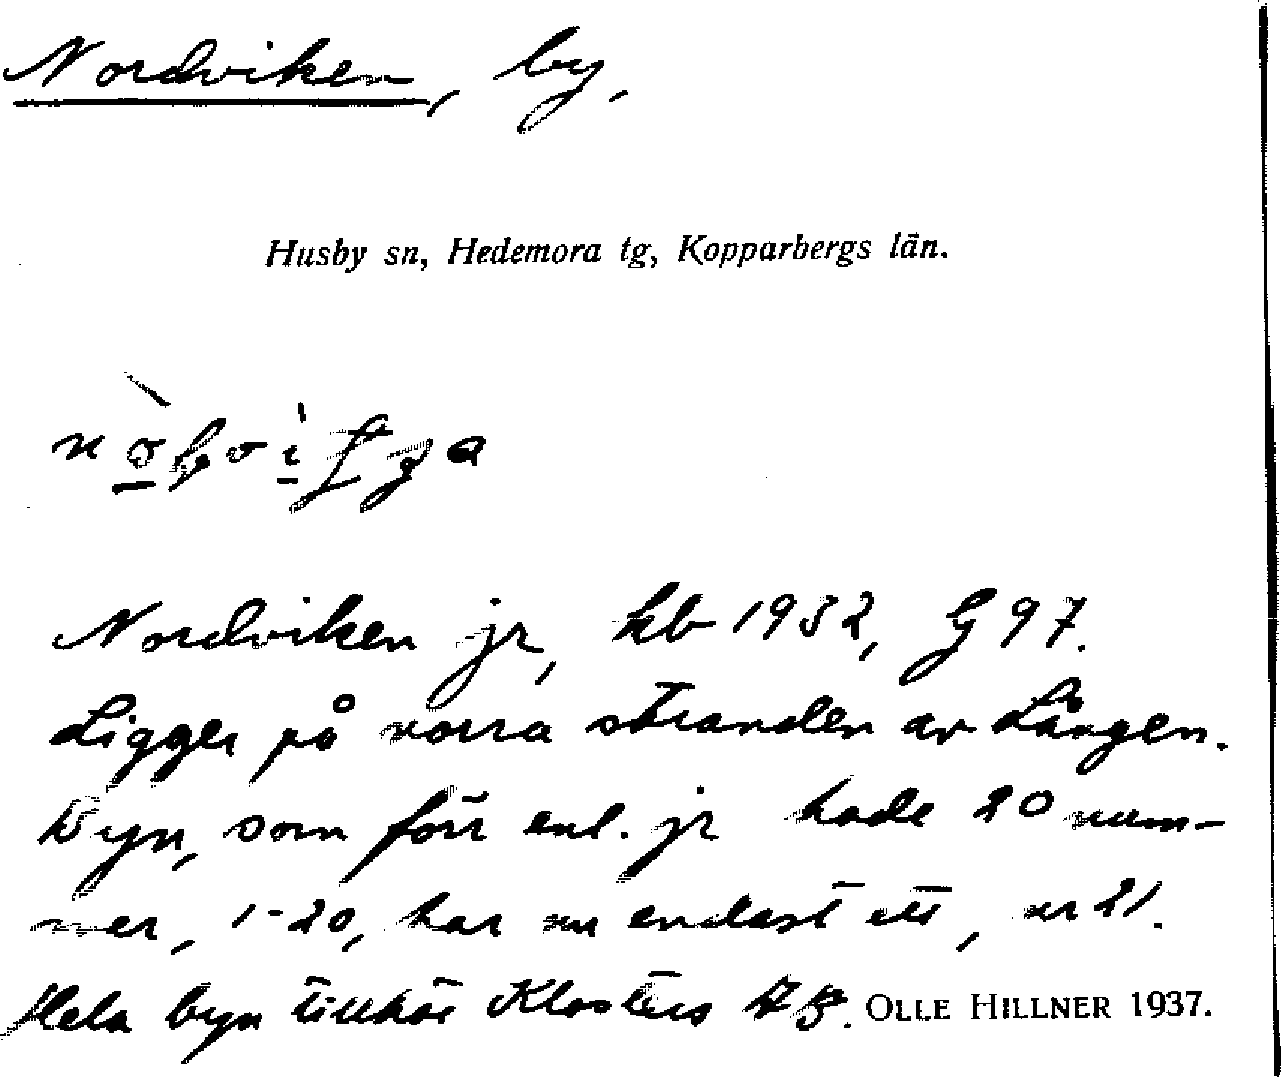 Nordviken, by.
Husby sn, Hedemora tg, Kopparbergs län.
Nordviken jr, kb 1932, G 97.
Ligger på norra stranden av Lången.
Byn, som förr enl. jr hade 20 num-
mer, 1-20, har nu endast ett, nr 21.
Hela byn tillhör Klosters AB. OLLE HILLNER 1937.